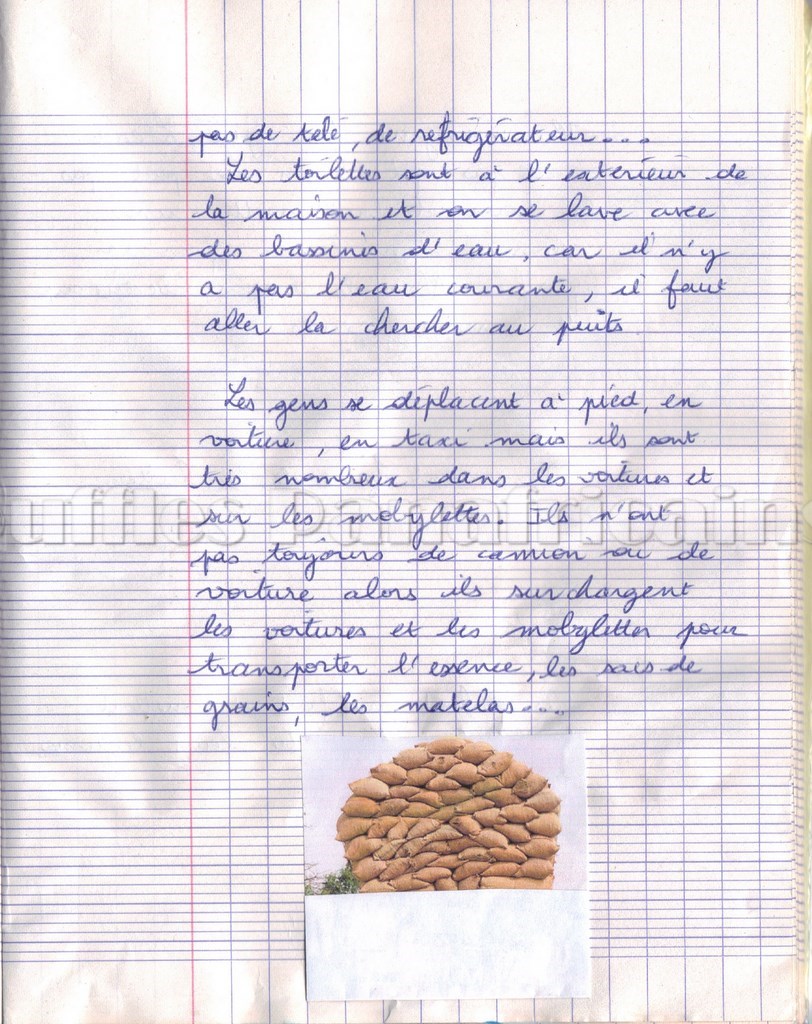 pas de télé, de refrigérateur....
Les toilettes sont à l'exterieur de
la maison et on se lave avec
des bassines d'eau, car il n'y
a pas l'eau courante, il faut
aller la chercher au puits
Les gens se déplacent à pied, en
voiture, en taxi mais ils sont
très nombreux dans les voitures et
sur les mobylettes. Ils n'ont
uffles Panafricain
pas toujours de camion ou de
voiture alors ils surchargent
les voitures et les mobylettes pour
transporter l'essence, les sacs de
grains, les matelas....